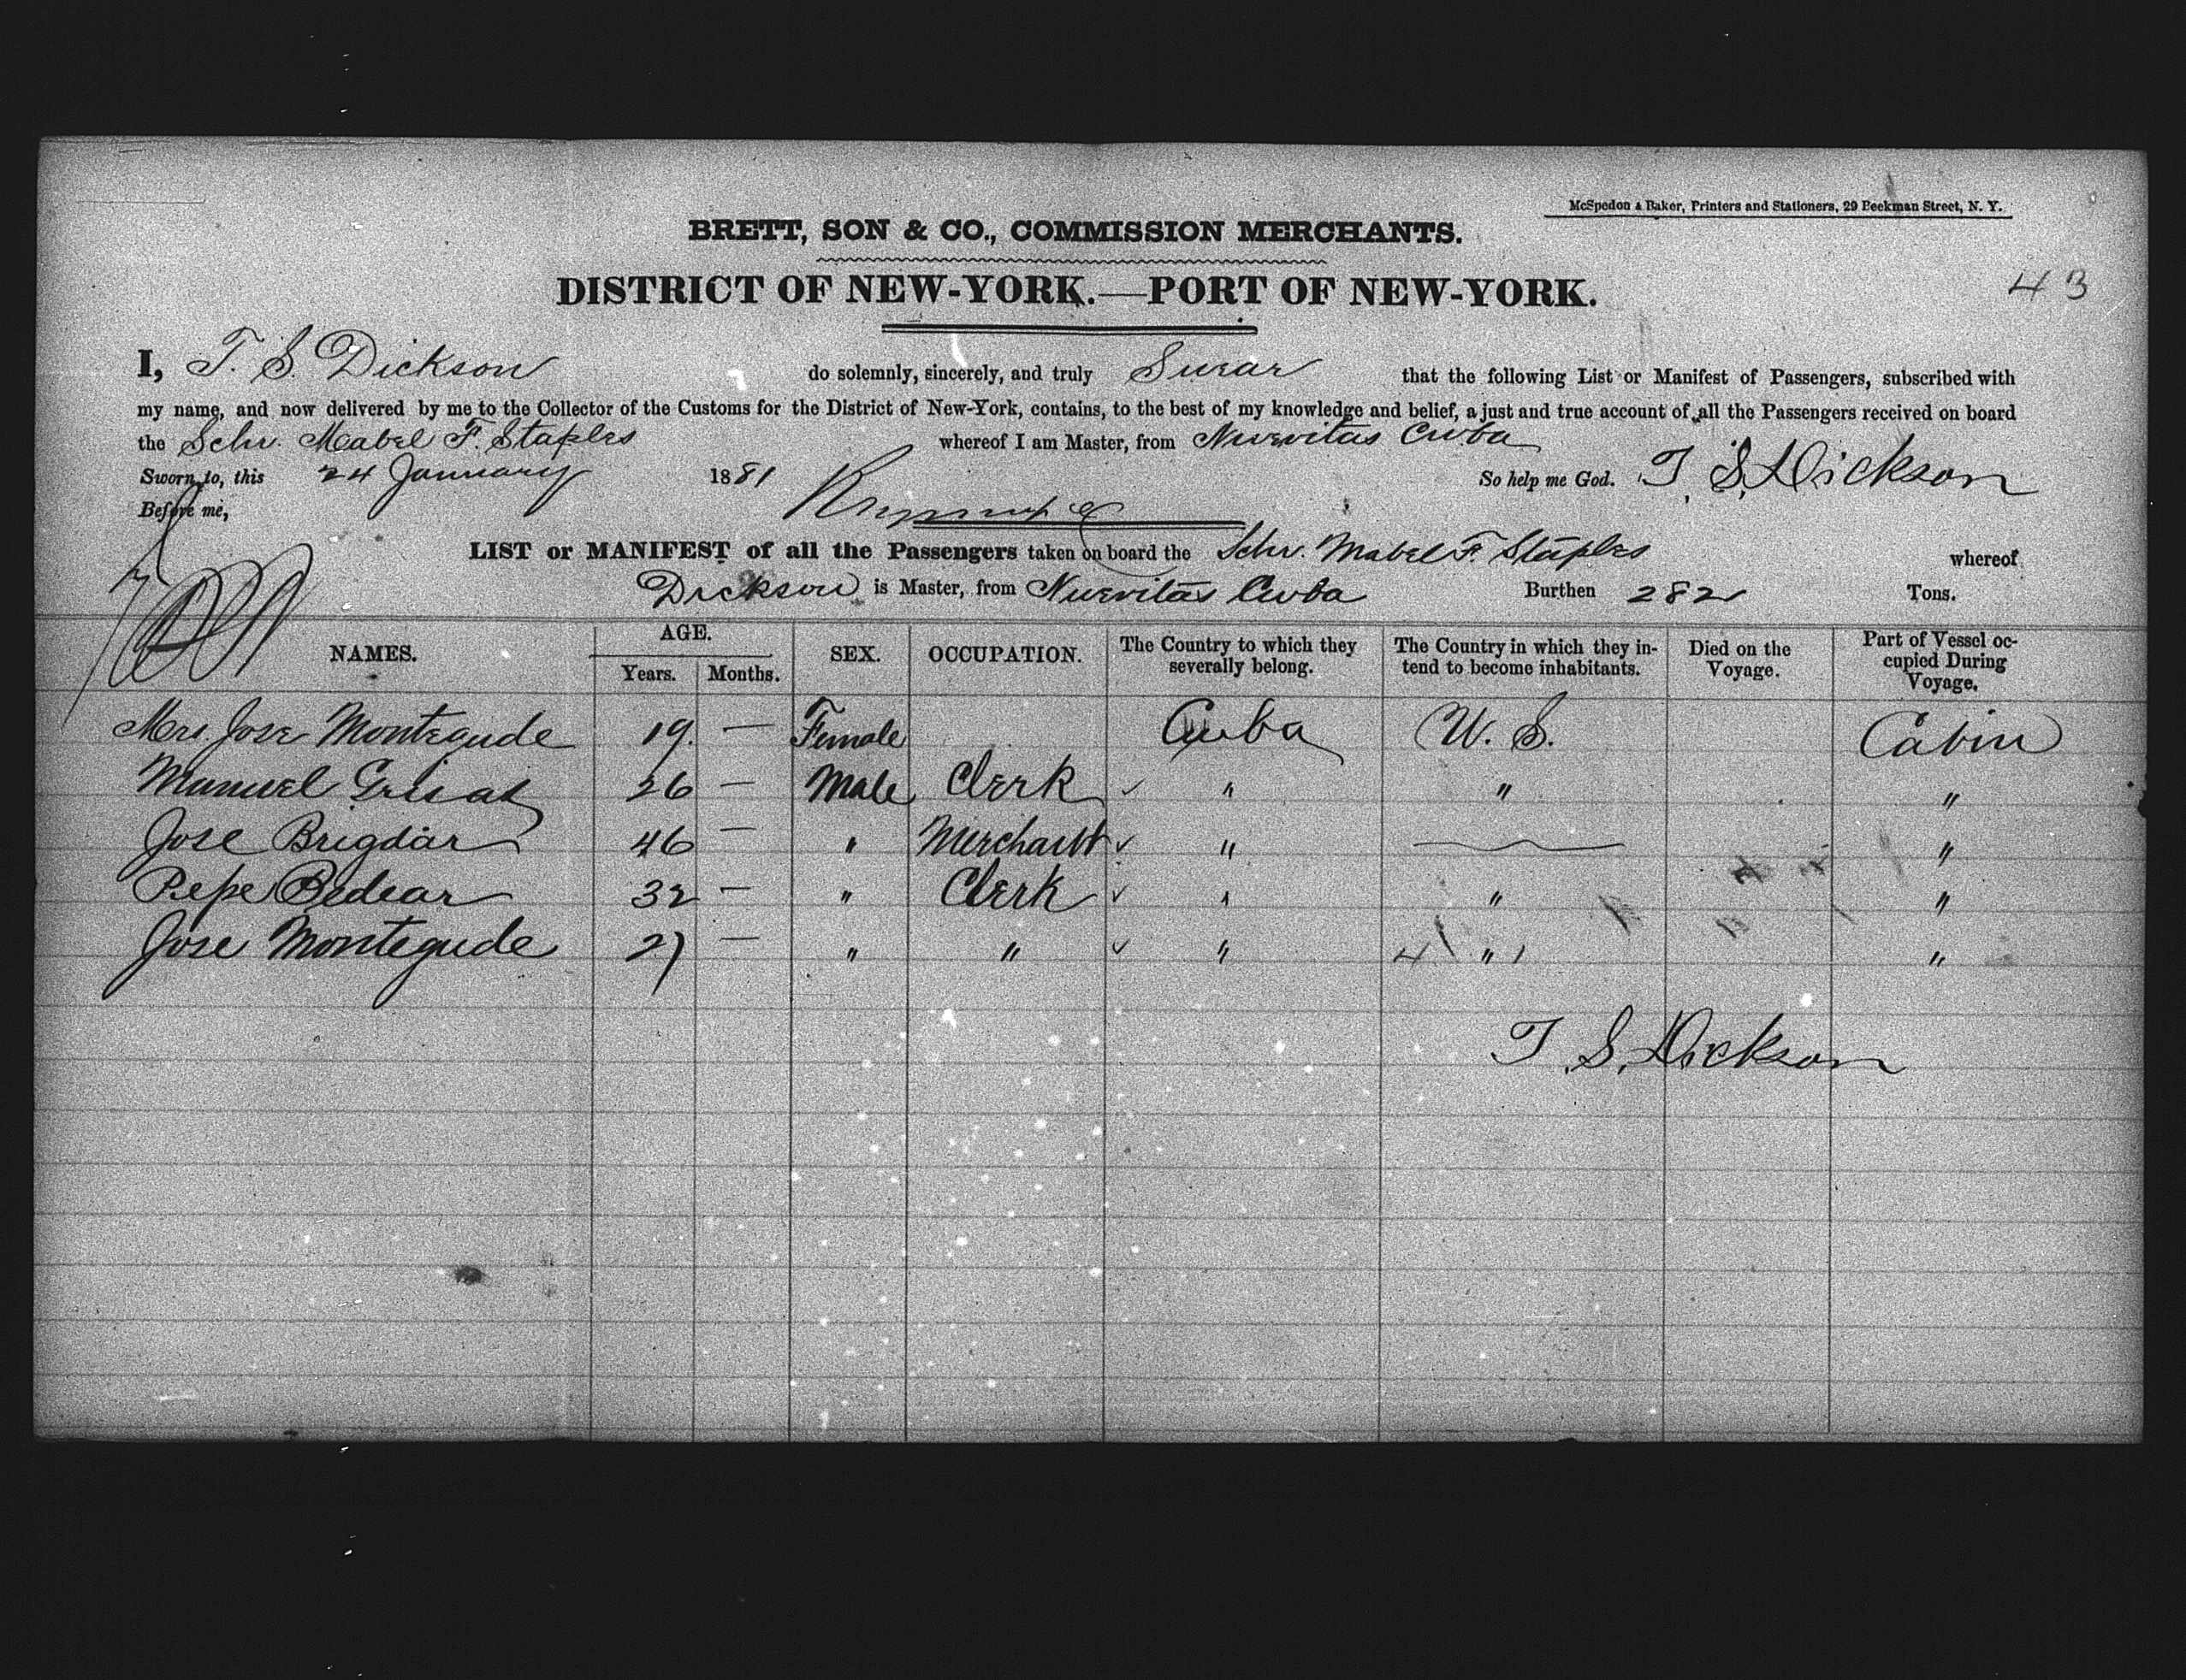 McSpedon & Baker, Printers and Stationers, 29 Beekman Street, N. Y.
BRETT, SON & CO., COMMISSION MERCHANTS.
DISTRICT OF NEW-YORK.—PORT OF NEW-YORK.
43
I, T. S. Dickson do solemnly, sincerely, and truly Swear that the following List or Manifest of Passengers, subscribed with
my name, and now delivered by me to the Collector of the Customs for the District of New-York, contains, to the best of my knowledge and belief, a just and true account of all the Passengers received on board
the Schr. Mabel F. Staples whereof I am Master, from Nuevitas Cuba
Sworn to, this 24 January 1881 So help me God. T. S. Dickson
Before me,
LIST or MANIFEST of all the Passengers taken on board the Schr. Mabel F. Staples whereof
Dickson is Master, from Nuevitas Cuba Burthen 282 Tons.
NAMES. AGE. Years. Months. SEX. OCCUPATION. The Country to which they severally belong. The Country in which they intend to become inhabitants. Died on the Voyage. Part of Vessel occupied During Voyage.
Mrs. Jose Montegude 19. — Female Cuba U. S. Cabin
Manuel 26 — Male Clerk ✓ " " "
Jose Brigdar 46 — " Merchant ✓ " — "
Pepe Bedear 32 — " Clerk ✓ " " "
Jose Montegude 27 — " " ✓ " 4 " 1 "
T. S. Dickson